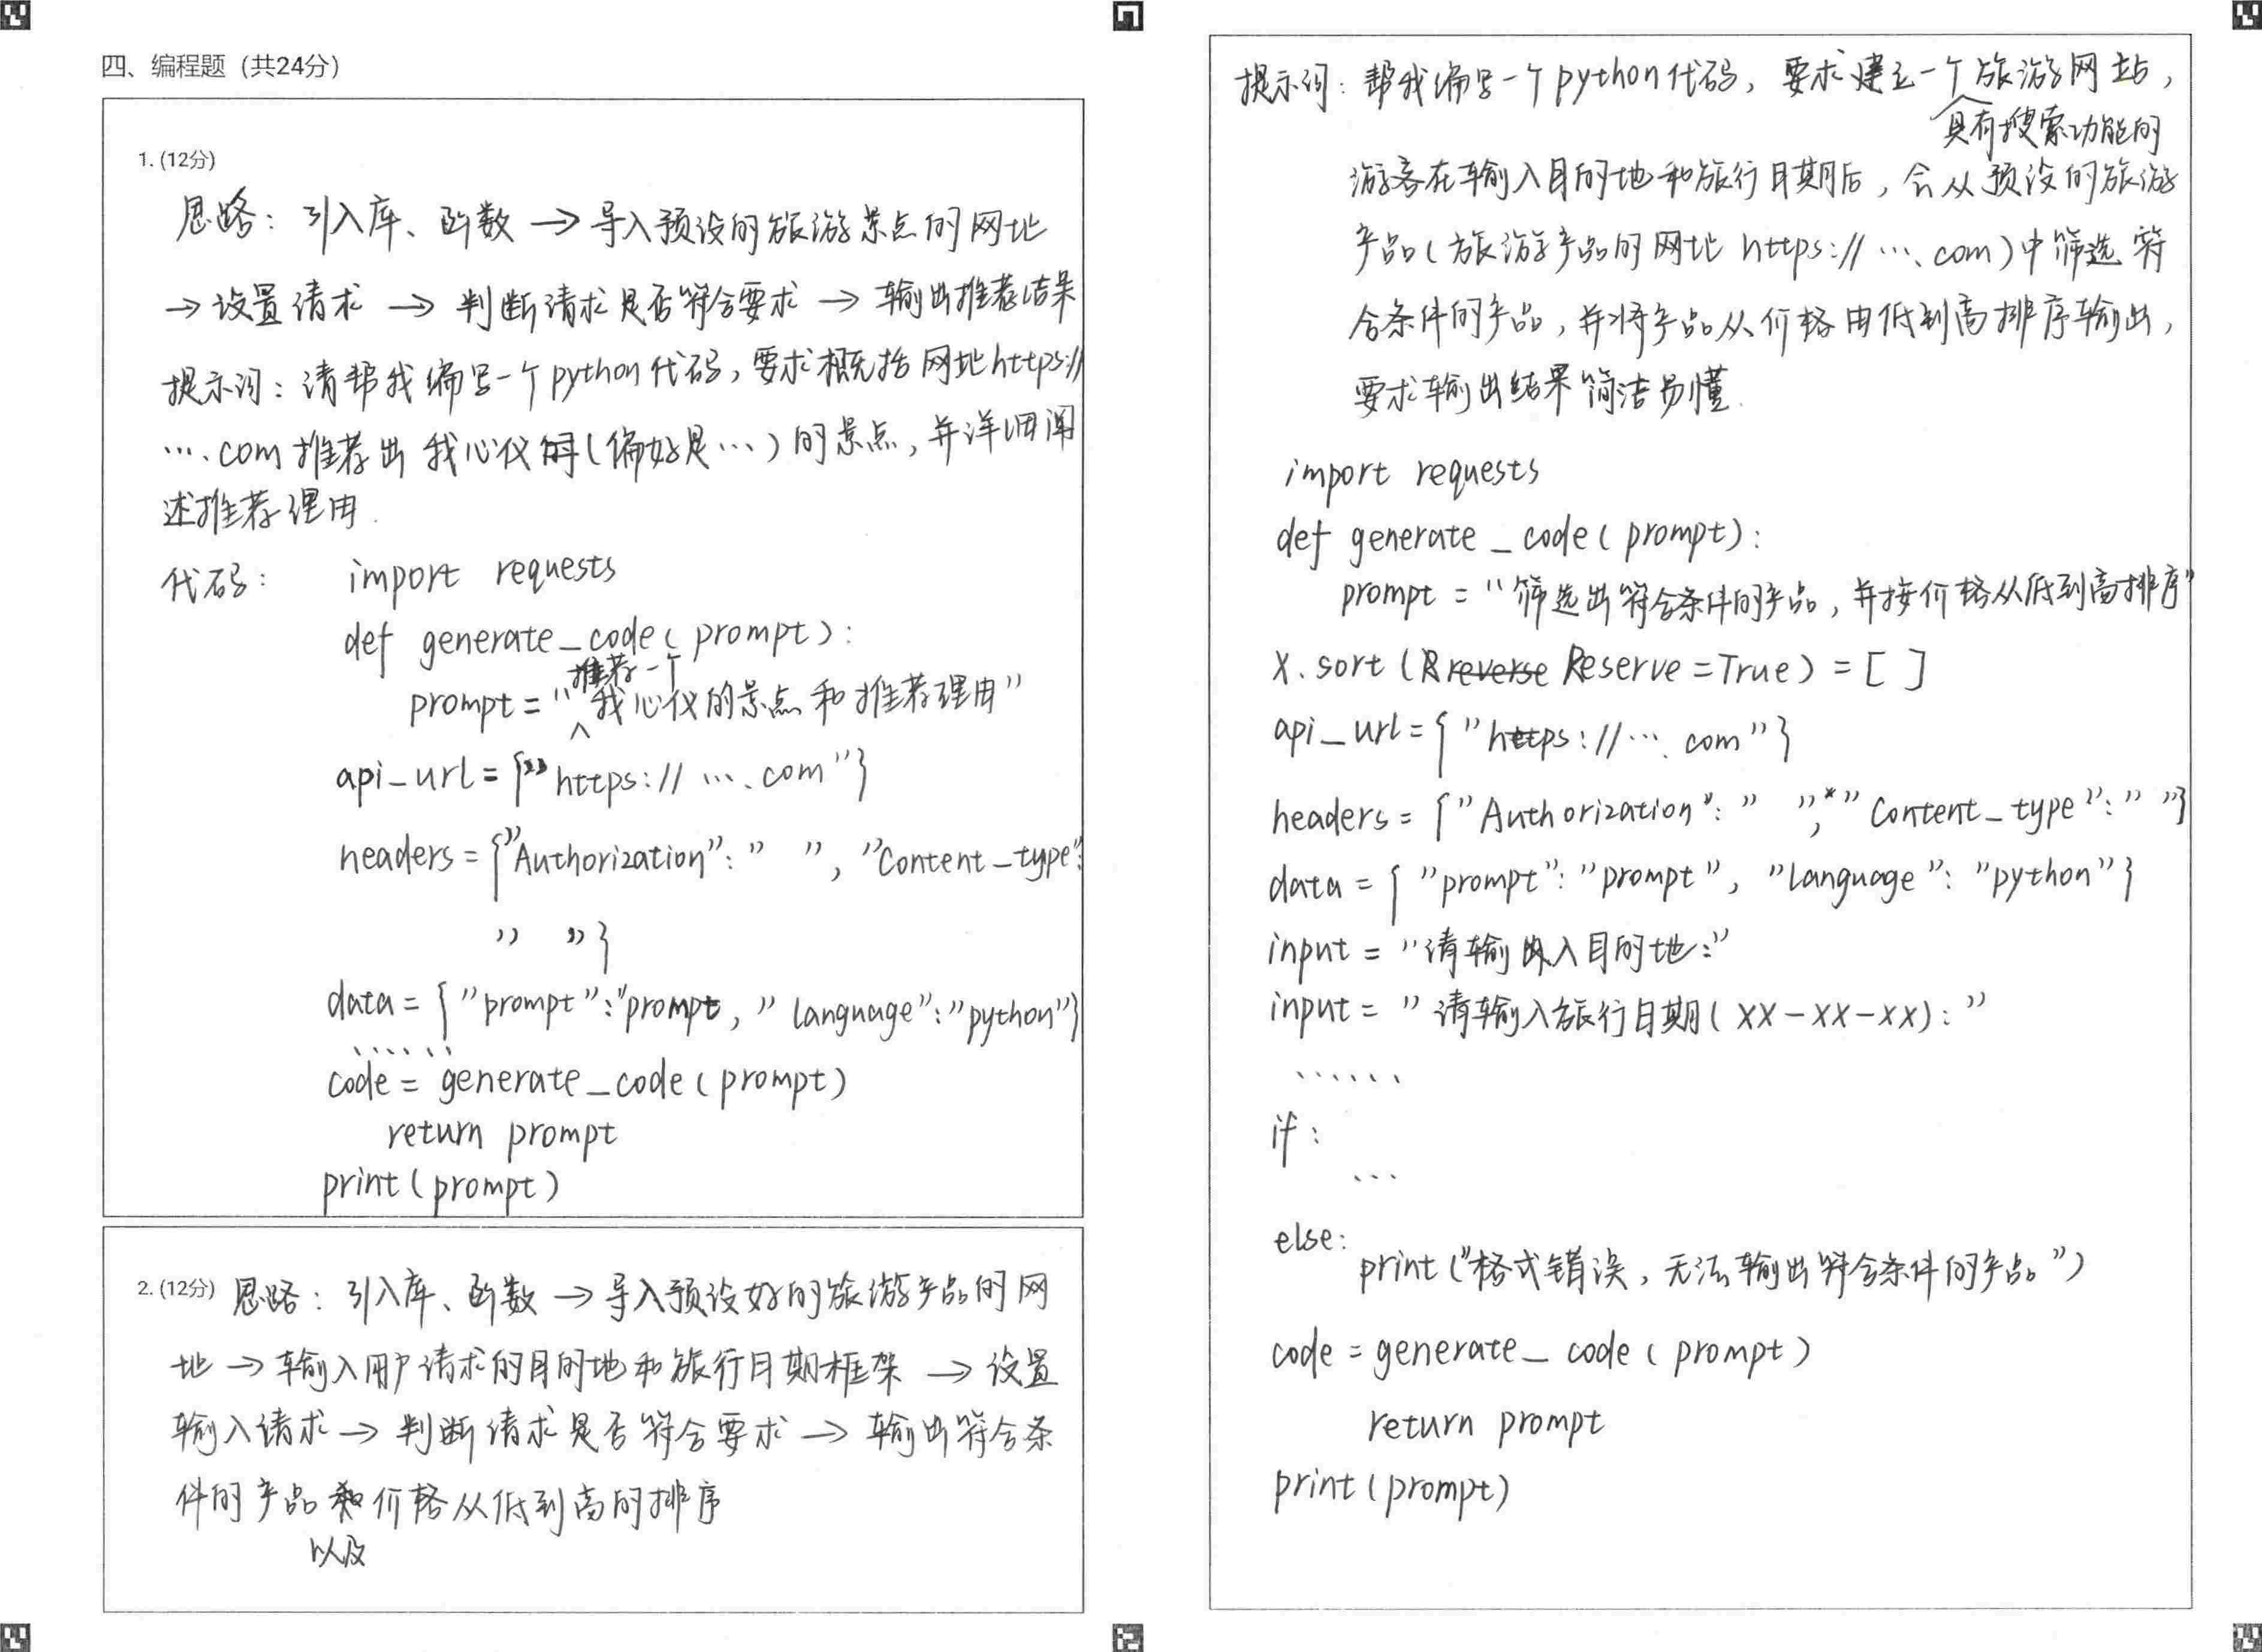 四、编程题（共24分）
1. (12分)
思路：引入库、函数 → 导入预设的旅游景点的网址
→ 设置请求 → 判断请求是否符合要求 → 输出推荐结果
提示词：请帮我编写一个python代码，要求概括网址https://
….com推荐出我心仪的(偏好是…)的景点，并详细阐
述推荐理由.
代码： import requests
def generate_code(prompt):
prompt="推荐一个我心仪的景点和推荐理由"
api_url={"https://….com"}
headers={"Authorization":" ","Content_type":
" "}
data={"prompt":"prompt,"language":"python"}
......
code=generate_code(prompt)
return prompt
print(prompt)
2. (12分) 思路：引入库、函数 → 导入预设好的旅游产品的网
址 → 输入用户请求的目的地和旅行日期框架 → 设置
输入请求 → 判断请求是否符合要求 → 输出符合条
件的产品以及价格从低到高的排序
提示词：帮我编写一个python代码，要求建立一个具有搜索功能的旅游网站，
游客在输入目的地和旅行日期后，会从预设的旅游
产品(旅游产品的网址 https://….com)中筛选符
合条件的产品，并将产品从价格由低到高排序输出，
要求输出结果简洁易懂.
import requests
def generate_code(prompt):
prompt="筛选出符合条件的产品，并按价格从低到高排序"
x.sort(Reserve=True)=[ ]
api_url={"https://….com"}
headers={"Authorization":" ","Content_type":" "}
data={"prompt":"prompt","language":"python"}
input="请输入目的地:"
input="请输入旅行日期(XX-XX-XX):"
......
if:
...
else:
print("格式错误，无法输出符合条件的产品")
code=generate_code(prompt)
return prompt
print(prompt)